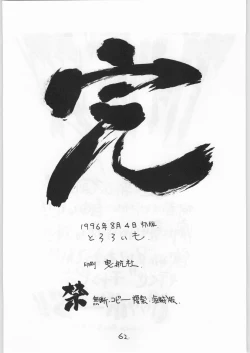 完
1996年8月4日 初版
とろろいも
印刷 曳航社
禁 無断・コピー・複製・海賊版.
62